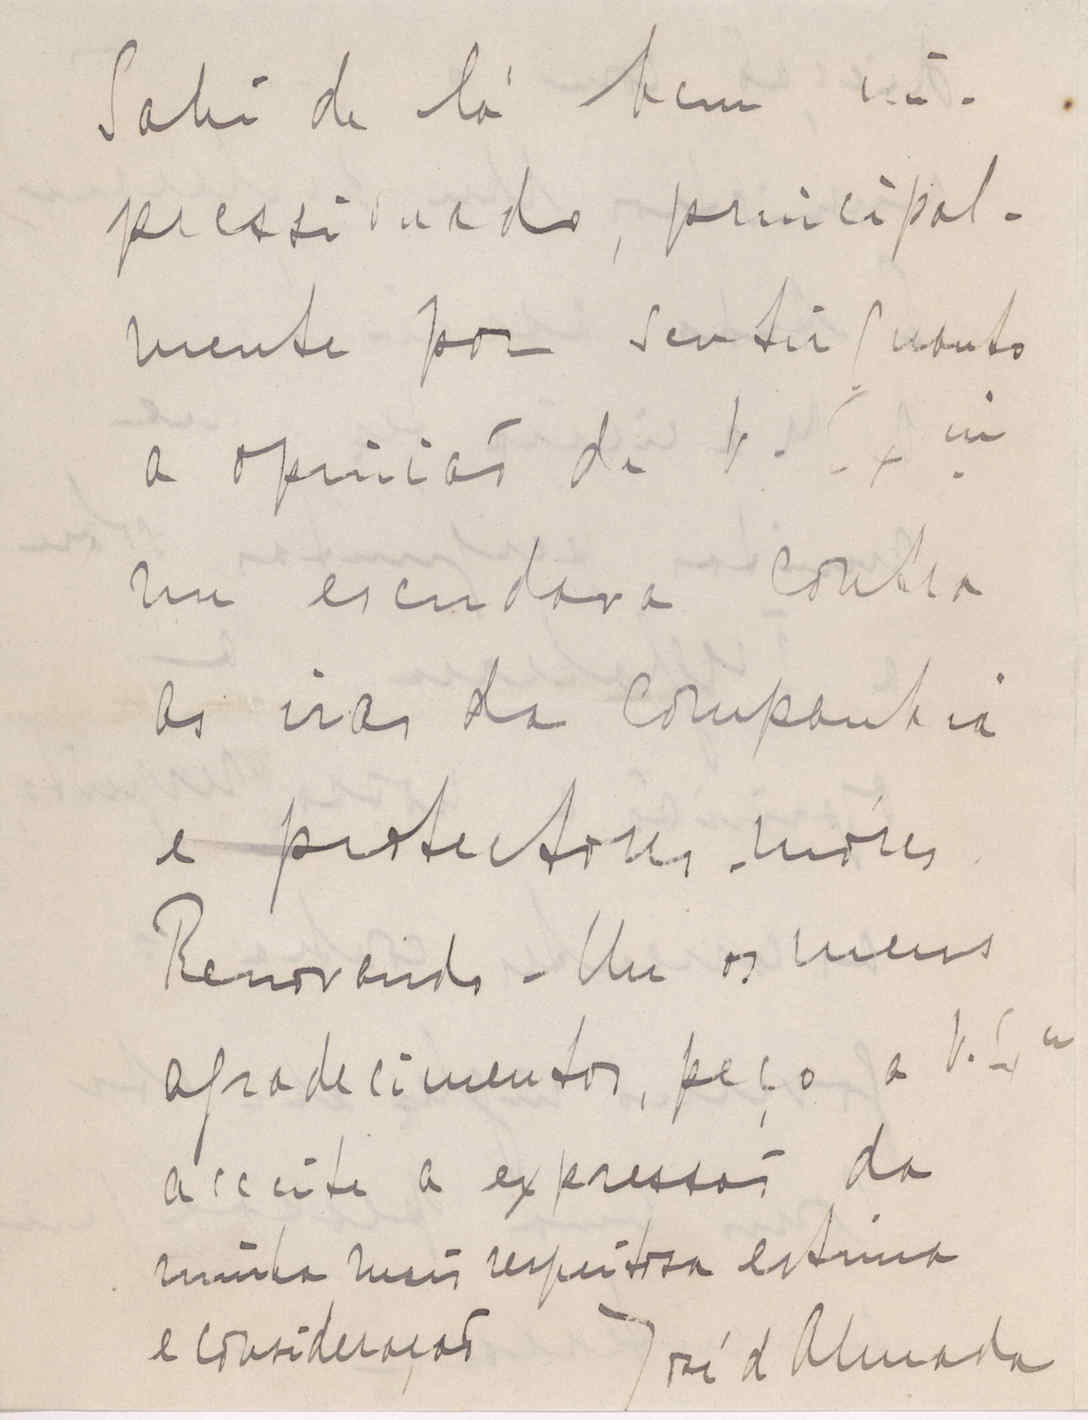 Sahi de lá bem im-
pressionado, principal-
mente por sentir quanto
a opinião de V. Ex.ª
me escudava contra
as iras da Companhia
e protectores-móres.
Renovando-lhe os meus
agradecimentos, peço a V. Ex.ª
acceite a expressão da
minha mais respeitosa estima
e consideração José d'Almada